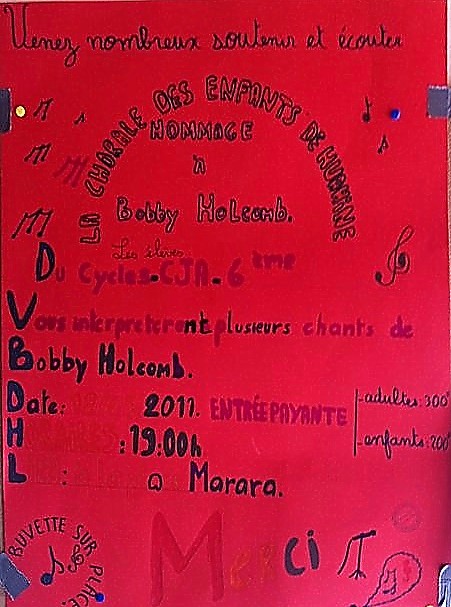 Venez nombreux soutenir et écouter
LA CHORALE DES ENFANTS DE HUAHINE
HOMMAGE
à
Bobby Holcomb.
Les élèves
Du Cycles.CJA.6ème
Vous interpréteront plusieurs chants de
Bobby Holcomb.
Date: 2011. ENTRÉE PAYANTE
adultes: 300
enfants: 200
: 19:00h
L : a Marara.
BUVETTE SUR PLACE.
Merci